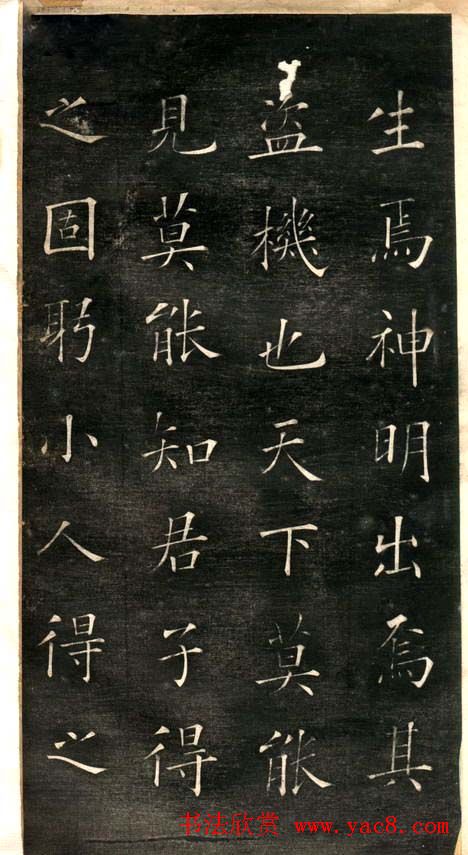 生焉神明出焉其
盜機也天下莫能
見莫能知君子得
之固躬小人得之
书法欣赏 www.yac8.com